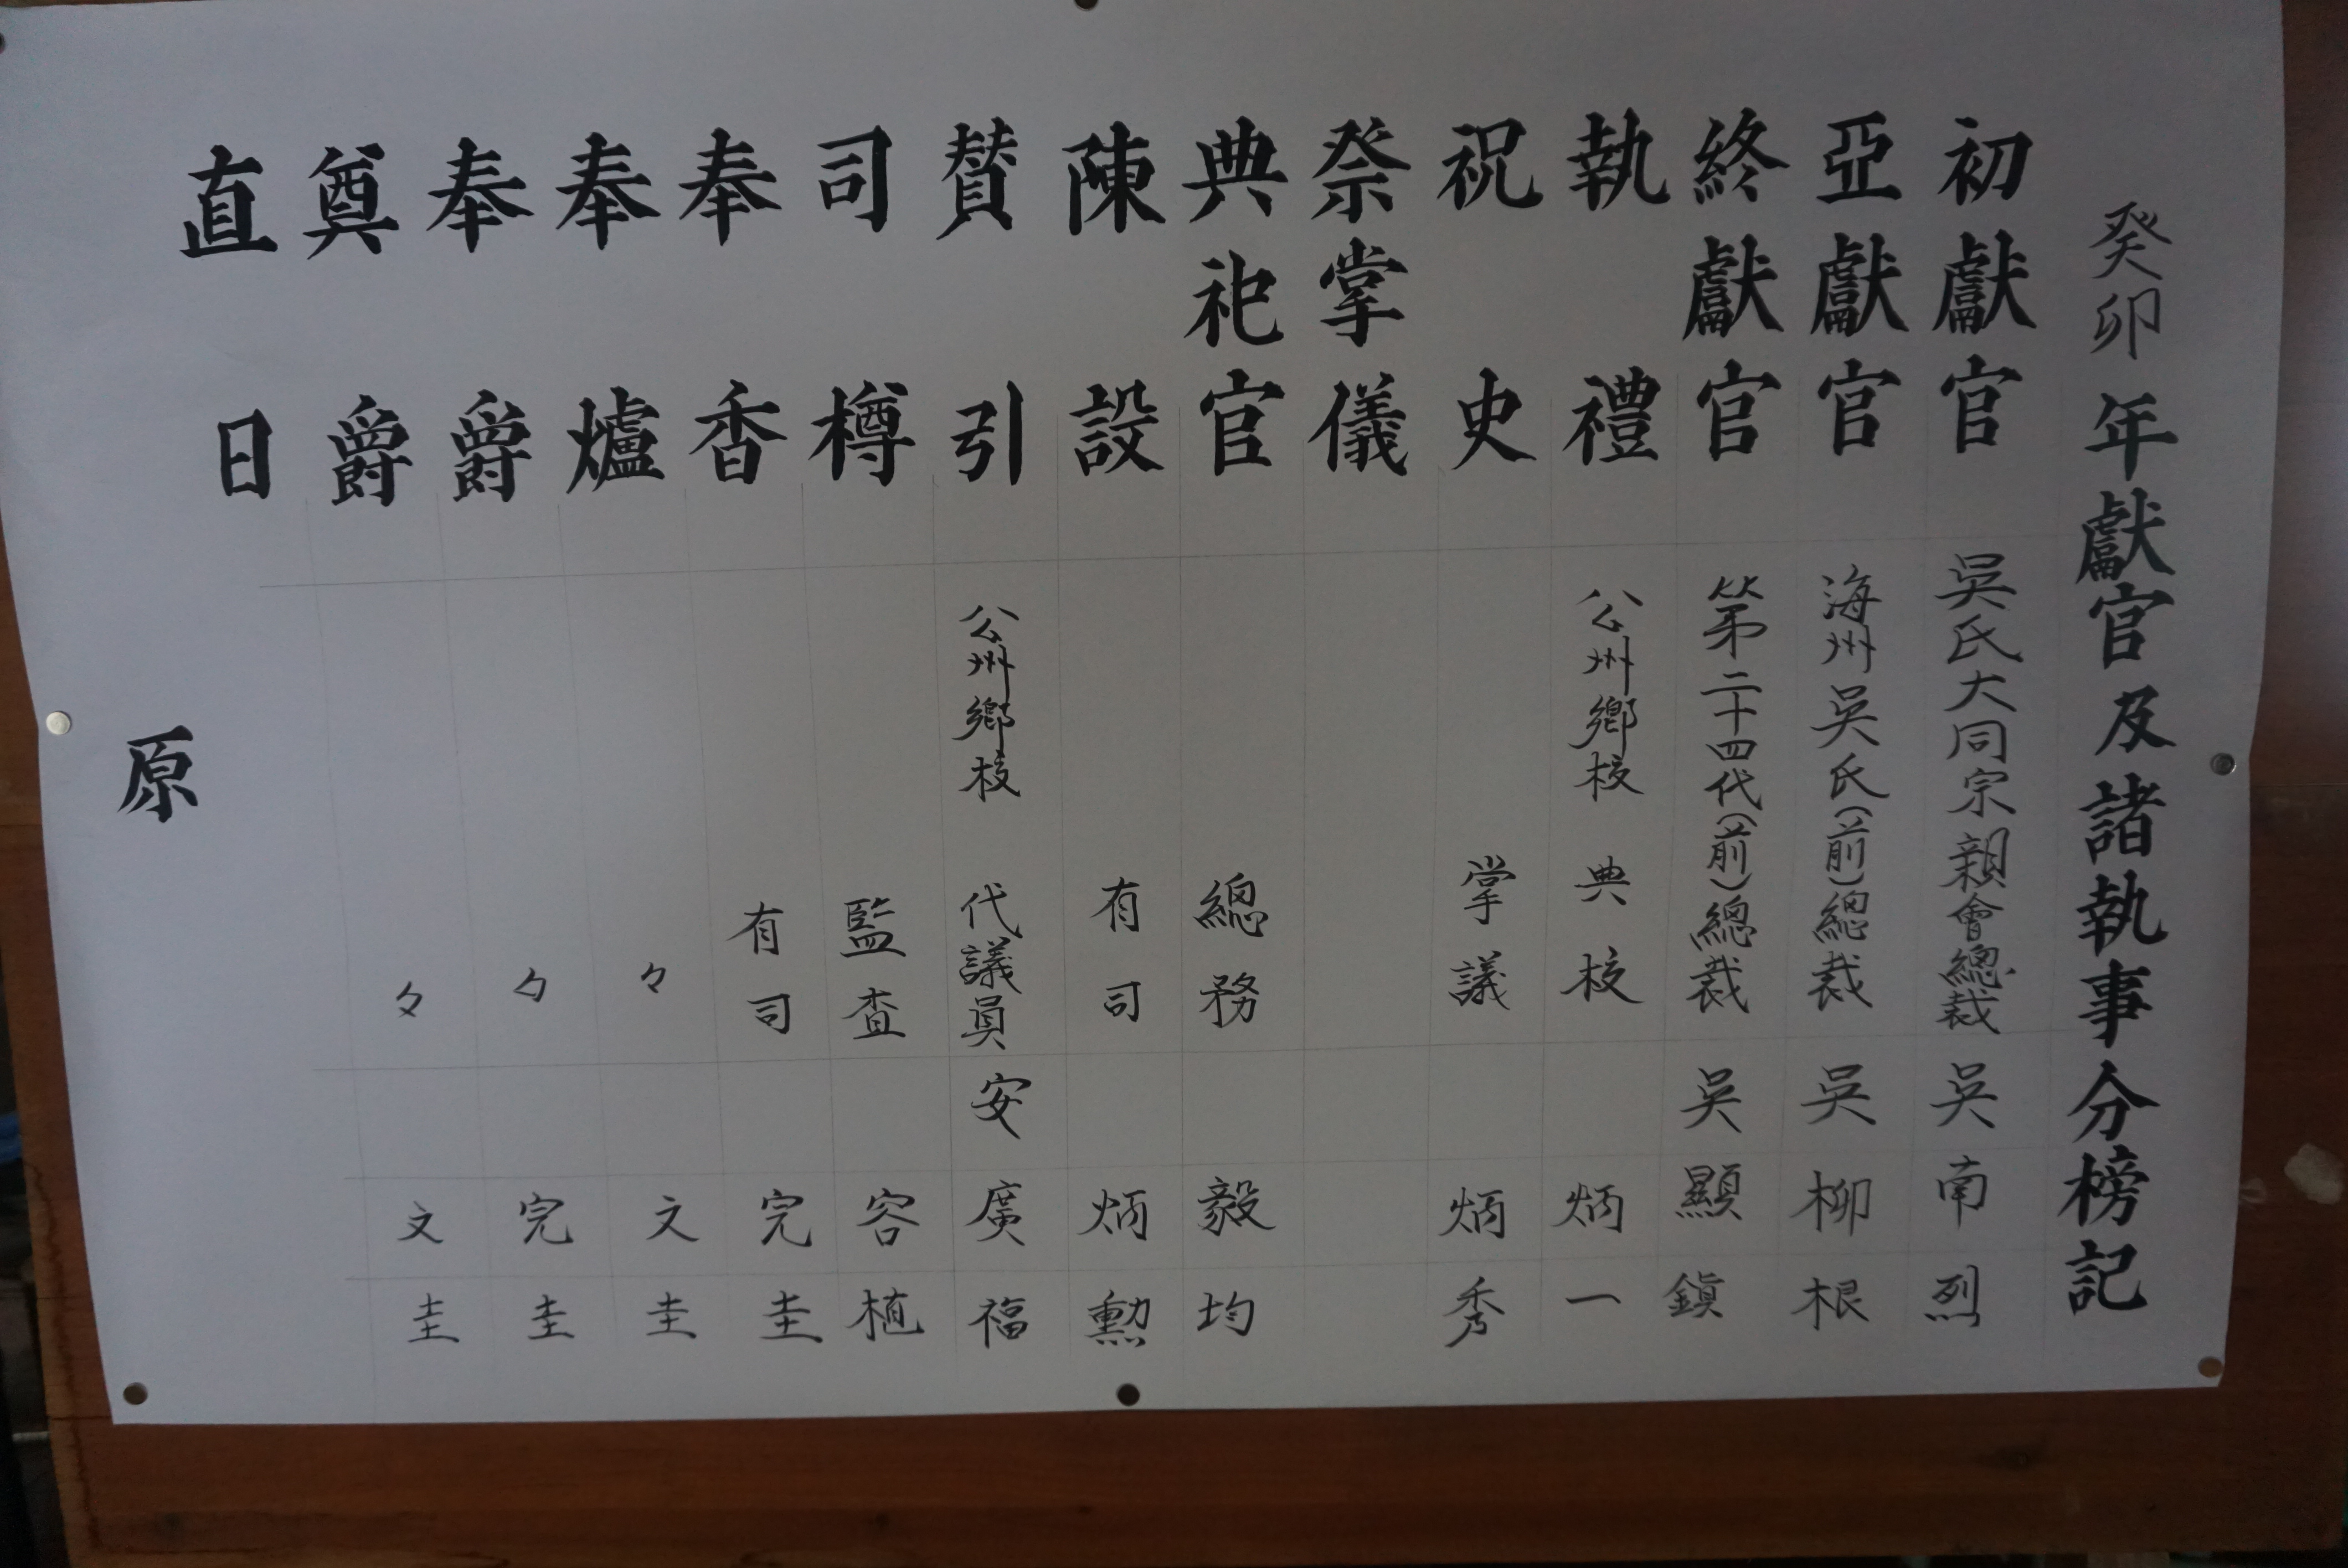 癸卯年獻官及諸執事分榜記
初獻官 吳氏大同宗親會總裁 吳南烈
亞獻官 海州吳氏(前)總裁 吳柳根
終獻官 第二十四代(前)總裁 吳顯鎭
執禮 公州鄕校 典校 炳一
祝史 掌議 炳秀
祭掌儀
典祀官 總務 毅均
陳設 有司 炳勳
賛引 公州鄕校 代議員 安廣福
司樽 監査 容植
奉香 有司 完圭
奉爐 々 文圭
奉爵 々 完圭
奠爵 々 文圭
直日
原